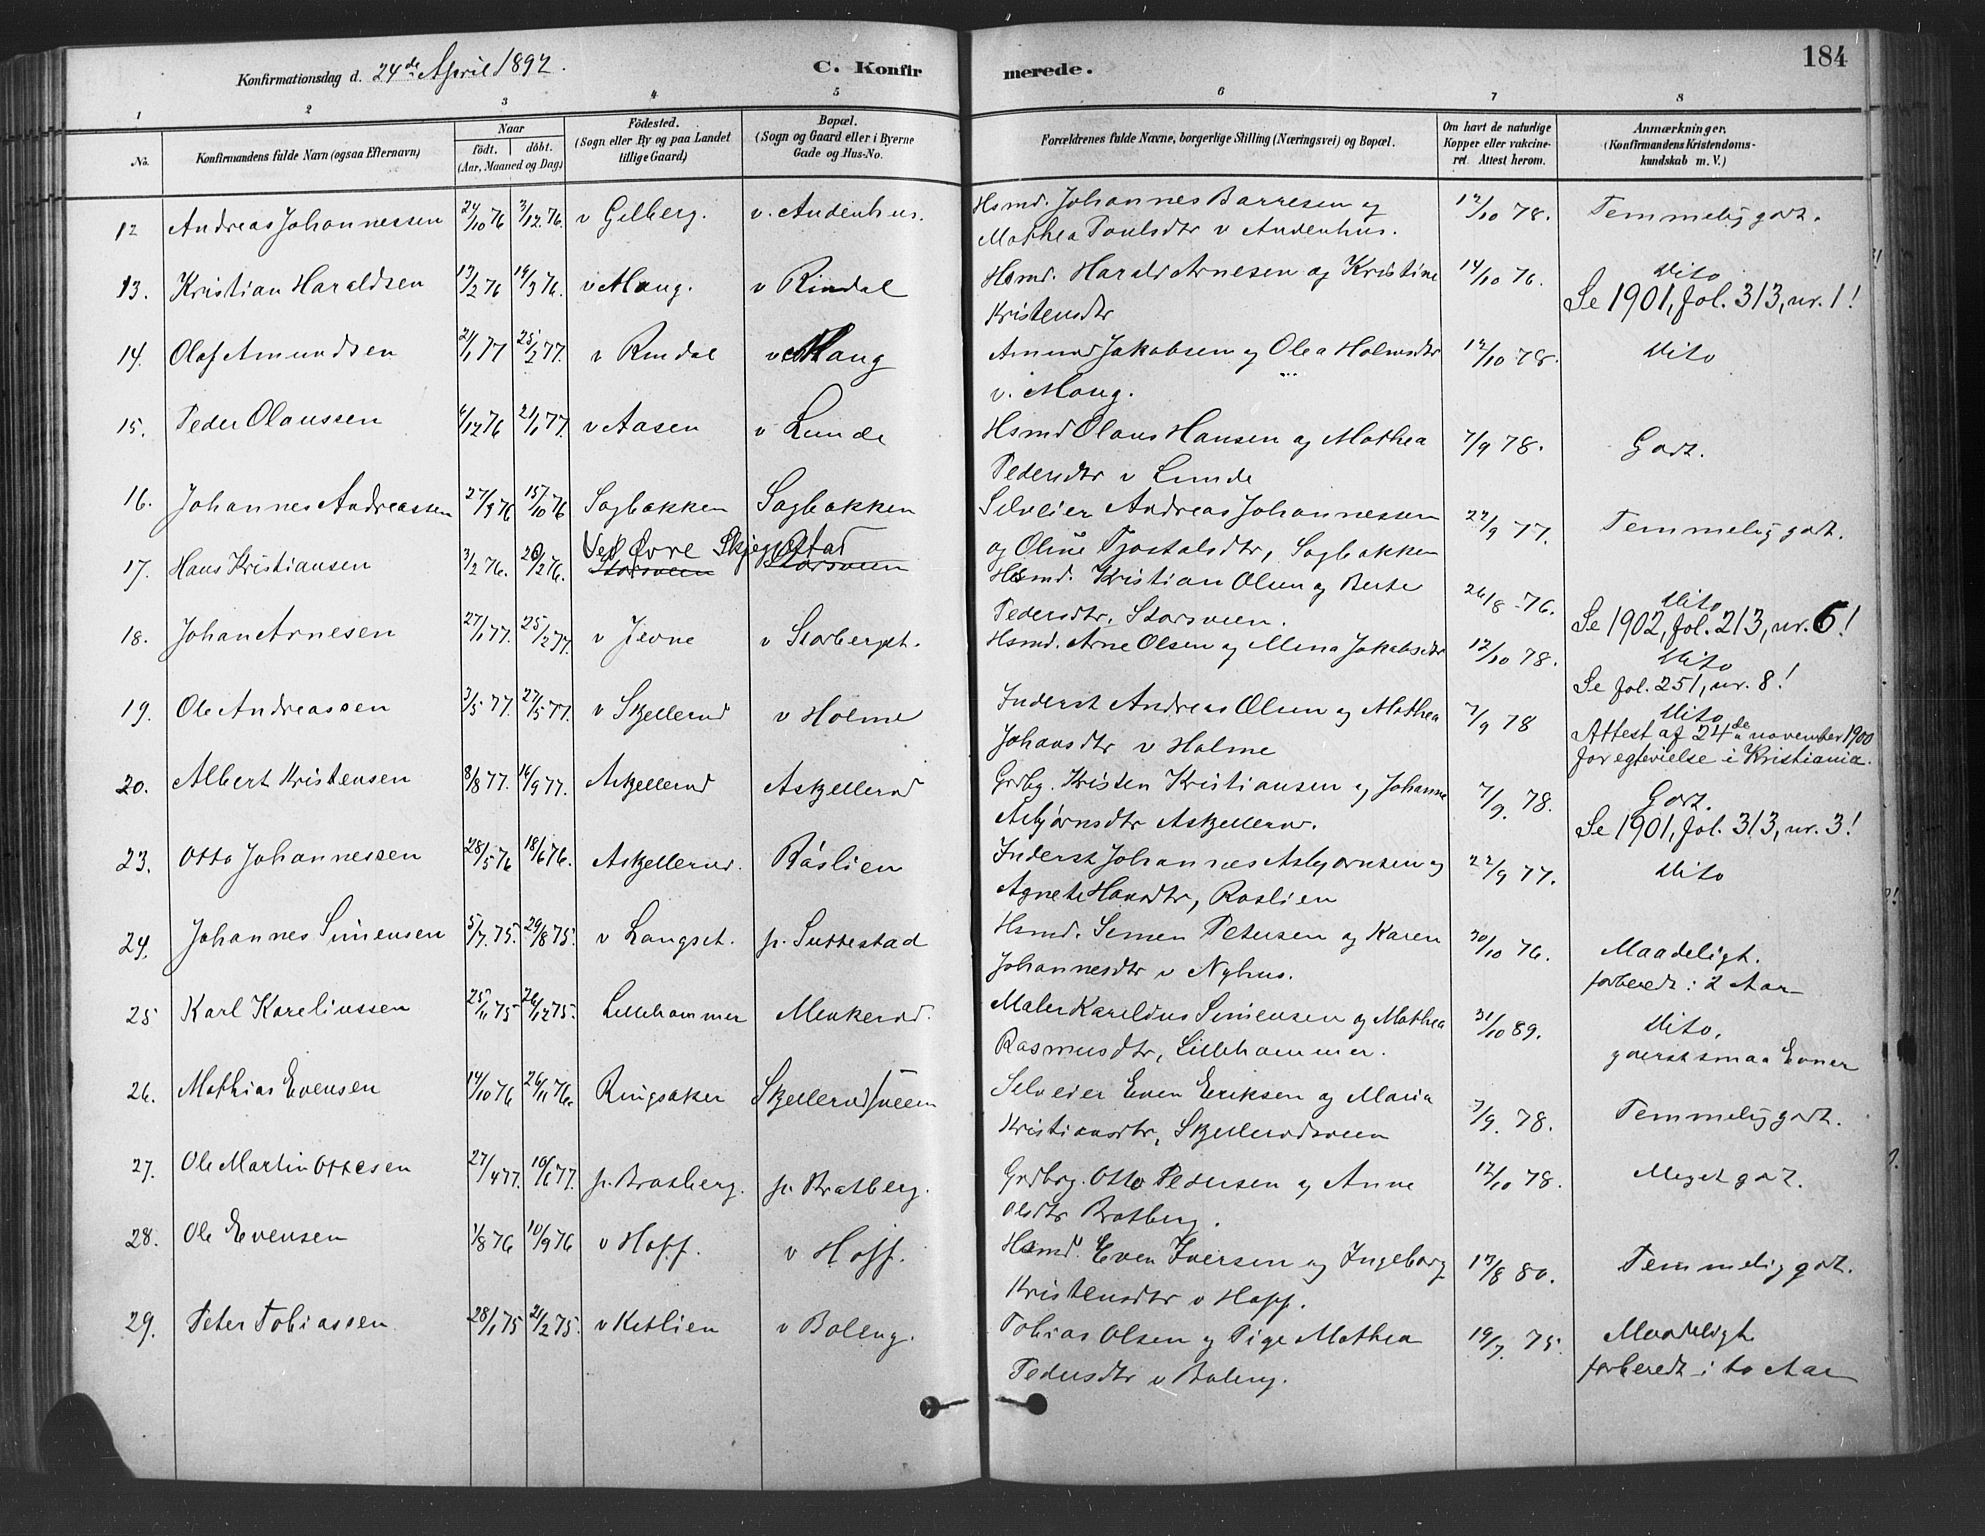 Konfirmationsdag d. 24de April 1892. C. Konfirmerede. 184
1 2 3 4 5 6 7 8
No. Konfirmandens fulde Navn (ogsaa Efternavn) Naar födt. döbt. (Aar, Maaned og Dag) Födested. (Sogn eller By og paa Landet tillige Gaard) Bopæl. (Sogn og Gaard eller i Byerne Gade og Hus-No. Forældrenes fulde Navne, borgerlige Stilling (Næringsvei) og Bopæl. Om havt de naturlige Kopper eller vakcineret. Attest herom. Anmærkninger. (Konfirmandens Kristendomskundskab m. V.)
12 Andreas Johannessen 24/10 76 3/12 76. v Gilberg. v. Audenhus. Hsmd. Johannes Barresen og 12/10 78. Temmelig godt.
Mathea Poulsdtr v Audenhus.
13. Kristian Haraldsen 13/2 76 19/3 76. v Moug. v Rindal Hsmd. Harald Arnesen og Kristine 14/10 76. Dito
Kristensdtr Se 1901, fol. 313, nr. 1!
14. Olaf Amundsen 21/1 77 25/2 77. v Rindal v Moug Amund Jakobsen og Olea Holmsdtr 12/10 78. Dito
v. Moug.
15. Peder Olaussen 4/12 76 21/1 77. v Aasen v Lunde Hsmd Olaus Hansen og Mathea 7/9 78. Godt.
Pedersdtr v Lunde
16. Johannes Andreassen 27/9 76 15/10 76 Sagbakken Sagbakken Selveier Andreas Johannessen 22/9 77. Temmelig godt.
og Oline Tjostolsdtr, Sagbakken
Ved Øvre Skjeggstad
17. Hans Kristiansen 3/2 76. 20/2 76. Storsveen Storsveen Hsmd. Kristian Olsen og Berte 26/8 76. Dito
Pedersdtr, Storsveen. Se 1902, fol. 213, nr. 6!
18. Johan Arnesen 27/1 77. 25/2 77. v Jevne v Storberget. Hsmd. Arne Olsen og Mina Jakobsdtr 12/10 78. Dito
Se fol. 251, nr. 8!
19. Ole Andreassen 3/5 77. 27/5 77. v Skjellerud v Holme Inderst Andreas Olsen og Mathea 7/9 78 Dito
Johansdtr v Holme Attest af 24de november 1900
for egtevielse i Kristiania.
20. Albert Kristensen 8/8 77. 16/9 77. Askjellerud Askjellerud Grdbg. Kristen Kristiansen og Johanne 7/9. 78. Godt.
Asbjørnsdtr Askjellerud. Se 1901, fol. 313, nr. 3!
23. Otto Johannessen 28/5 76 18/6 76. Askjellerud. Råslien Inderst Johannes Asbjørnsen og 22/9 77. Dito
Agnete Hansdtr, Roslien
24. Johannes Simensen 5/7. 75. 29/8 75. v Langset. p. Suttestad Hsmd. Semen Petersen og Karen 30/10 76. Maadeligt.
Johannesdtr v Nyhus. forberedt i 2 Aar
25 Karl Kareliussen 25/11 75 26/12 75. Lillehammer Menkerud. Maler Karelius Simensen og Mathea 31/10 89. Dito,
Rasmusdtr, Lillehammer. yderst smaa Evner
26. Mathias Evensen 14/10 76 26/11 76. Ringsaker Skjellerudsveen Selveier Even Eriksen og Maria 7/9. 78. Temmelig godt.
Kristiansdtr, Skjellerudsveen
27. Ole Martin Ottesen 27/4 77. 10/6 77. p. Bratberg. p. Bratberg. Grdbrg. Otto Pedersen og Anne 12/10 78. Meget godt.
Olsdtr Bratberg.
28. Ole Evensen 1/8 76 10/9 76 v Hoff. v Hoff. Hsmd. Even Iversen og Ingeborg 13/8 80. Temmelig godt.
Kristensdtr v Hoff.
29. Peter Tobiassen 28/1 75 21/2 75. v Ketlien v Boleng. Tobias Olsen og Pige Mathea 19/7. 75. Maadeligt
Pedersdtr v Boleng. forberedt i to Aar